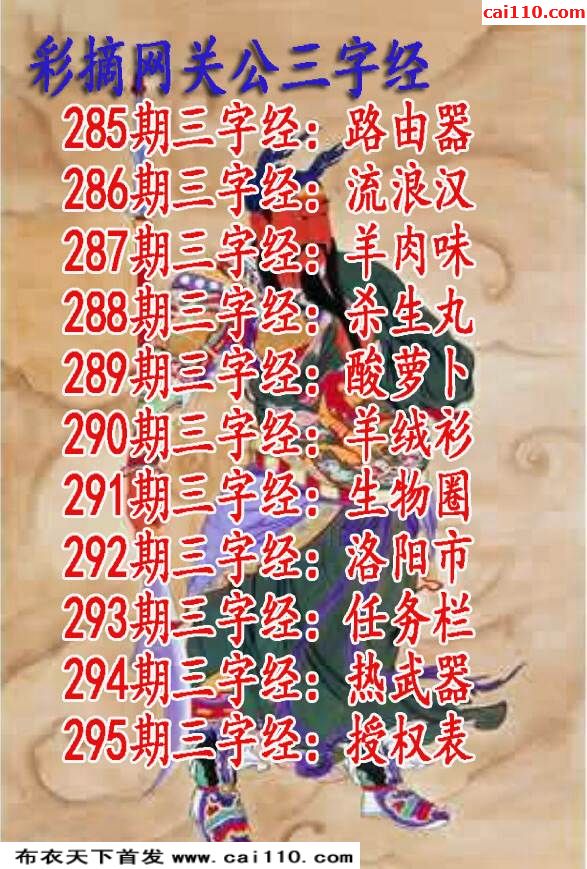 cai110.com
彩摘网关公三字经
285期三字经：路由器
286期三字经：流浪汉
287期三字经：羊肉味
288期三字经：杀生丸
289期三字经：酸萝卜
290期三字经：羊绒衫
291期三字经：生物圈
292期三字经：洛阳市
293期三字经：任务栏
294期三字经：热武器
295期三字经：授权表
布衣天下首发 www.cai110.com